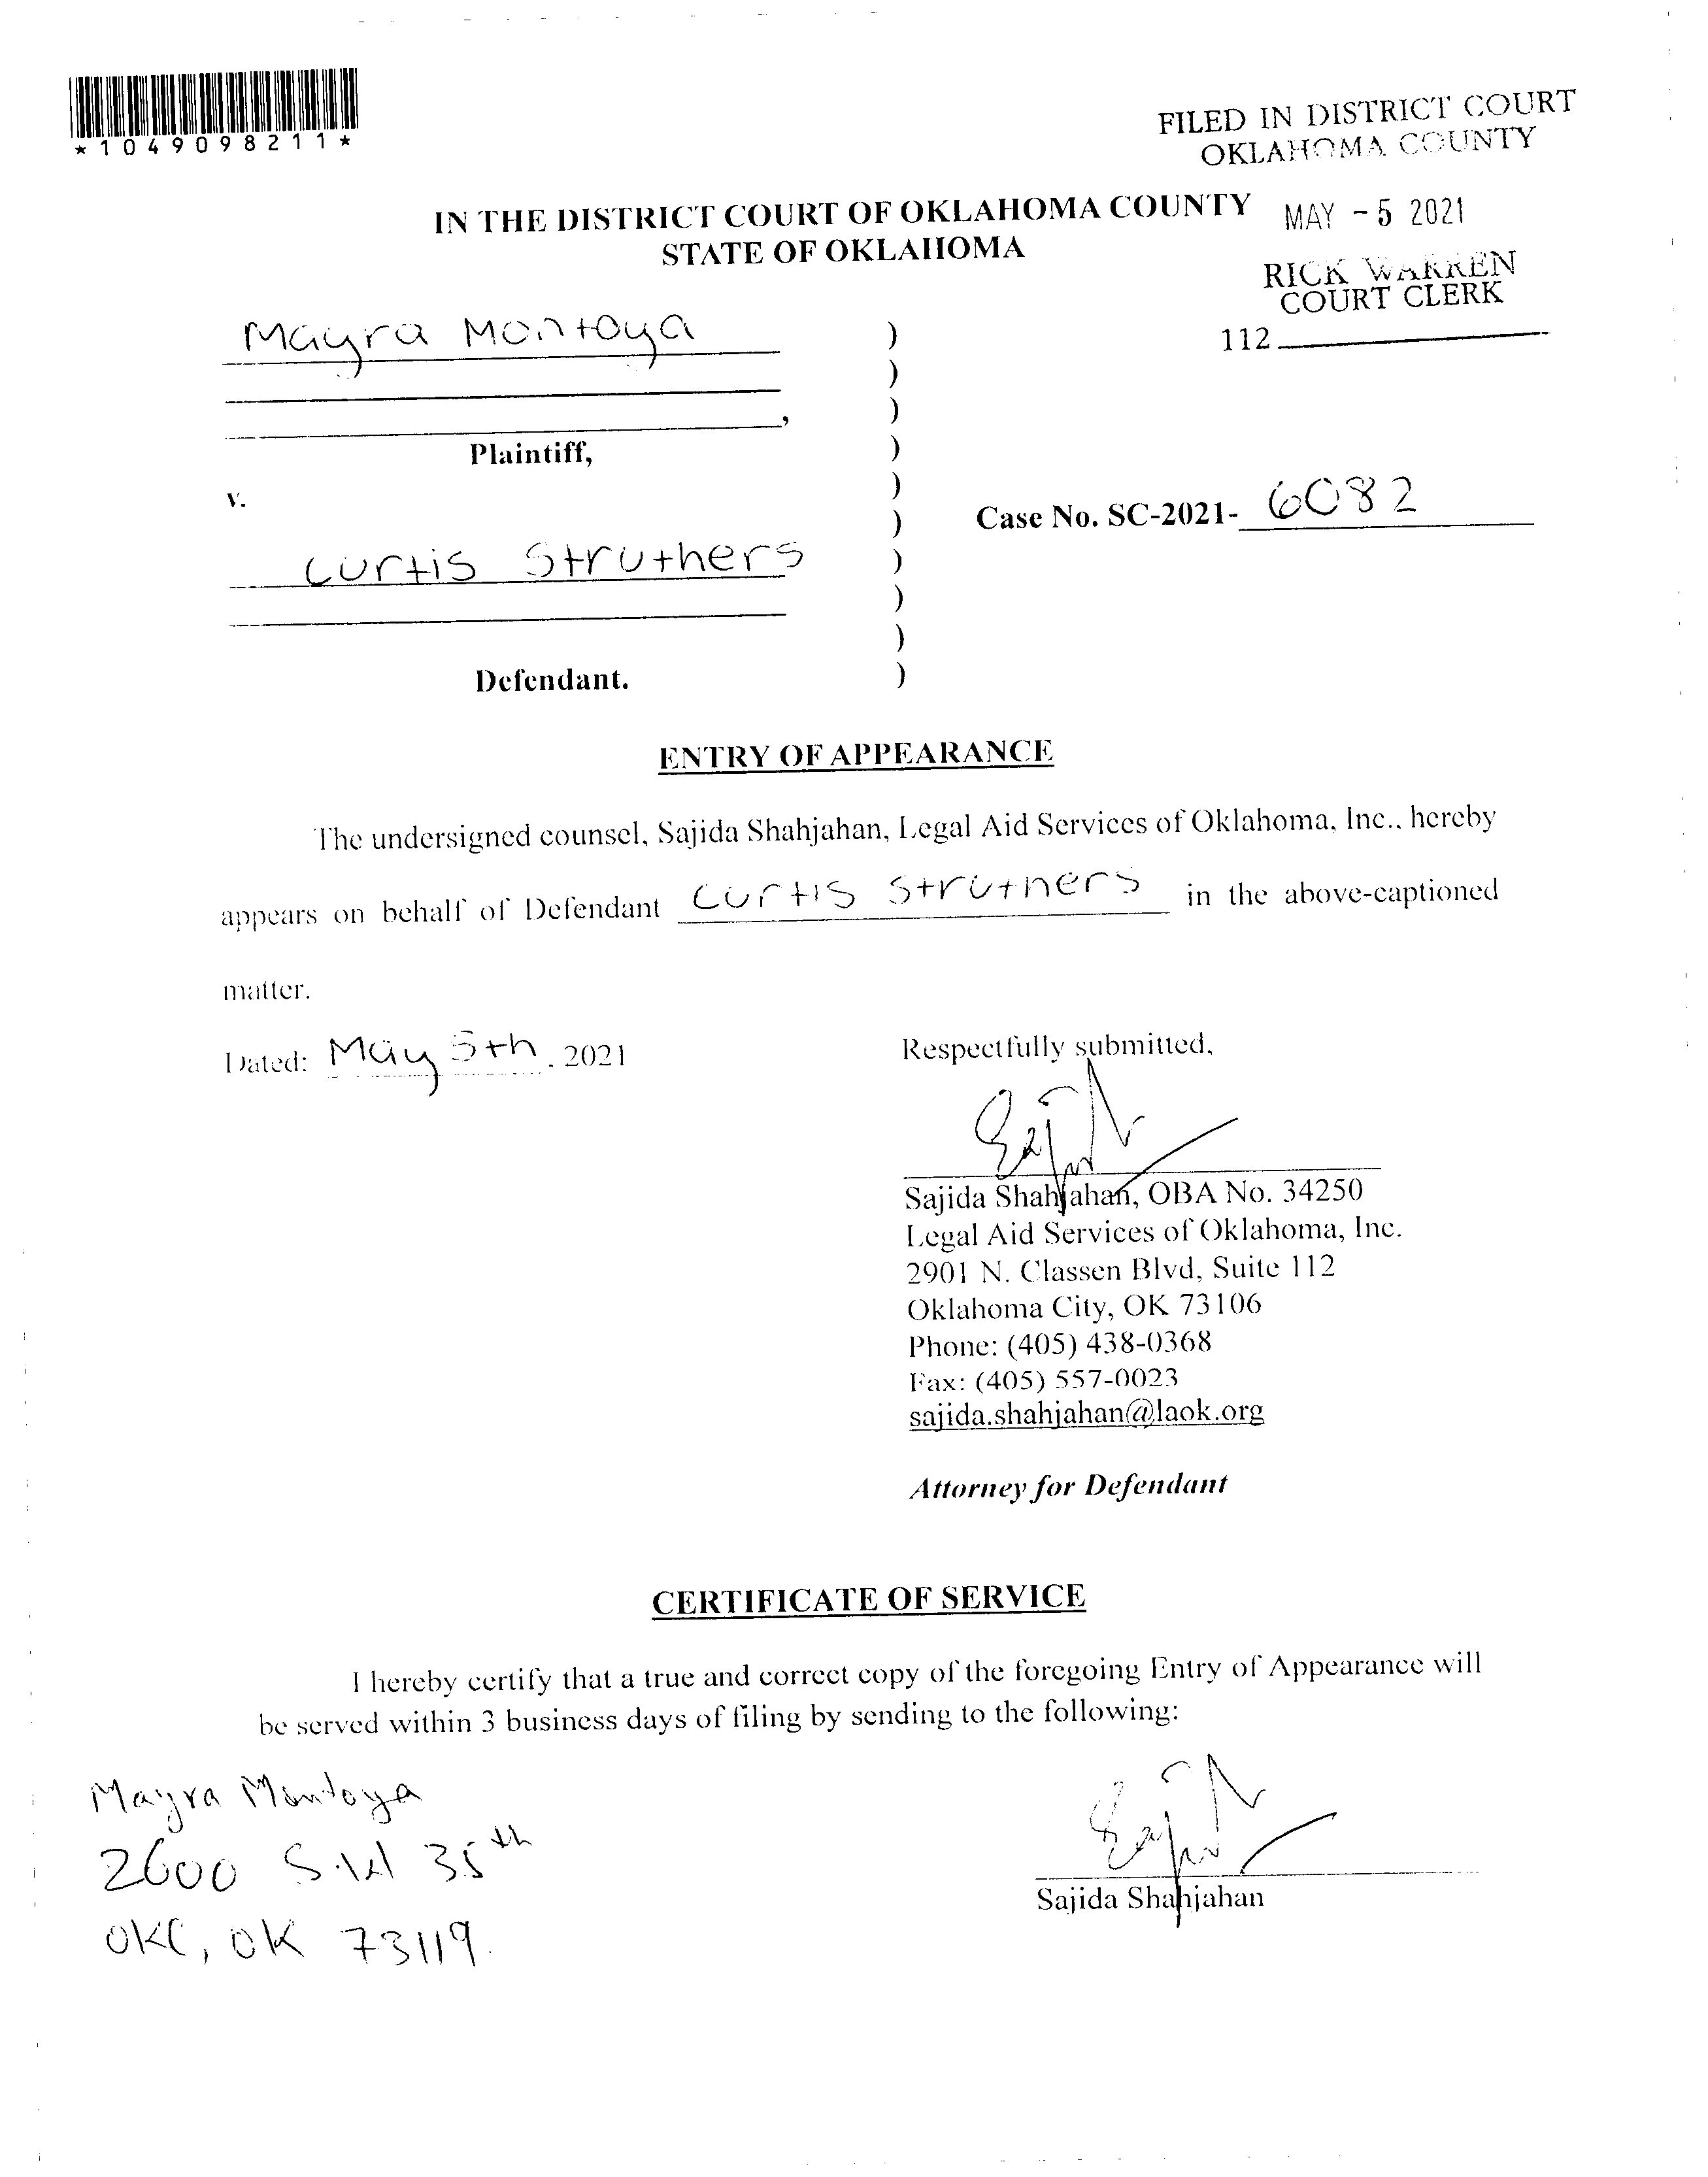 *1049098211*
FILED IN DISTRICT COURT
OKLAHOMA COUNTY
IN THE DISTRICT COURT OF OKLAHOMA COUNTY
STATE OF OKLAHOMA
MAY - 5 2021
RICK WARREN
COURT CLERK
112
Mayra Montoya )
)
, )
Plaintiff, )
v. )
Case No. SC-2021- 6082
)
Curtis Struthers )
)
)
Defendant. )
ENTRY OF APPEARANCE
The undersigned counsel, Sajida Shahjahan, Legal Aid Services of Oklahoma, Inc., hereby
appears on behalf of Defendant Curtis Struthers in the above-captioned
matter.
Dated: May 5th, 2021
Respectfully submitted,
Sajida Shahjahan, OBA No. 34250
Legal Aid Services of Oklahoma, Inc.
2901 N. Classen Blvd, Suite 112
Oklahoma City, OK 73106
Phone: (405) 438-0368
Fax: (405) 557-0023
sajida.shahjahan@laok.org
Attorney for Defendant
CERTIFICATE OF SERVICE
I hereby certify that a true and correct copy of the foregoing Entry of Appearance will
be served within 3 business days of filing by sending to the following:
Mayra Montoya
2600 S.W 35th
OKC, OK 73119.
Sajida Shahjahan